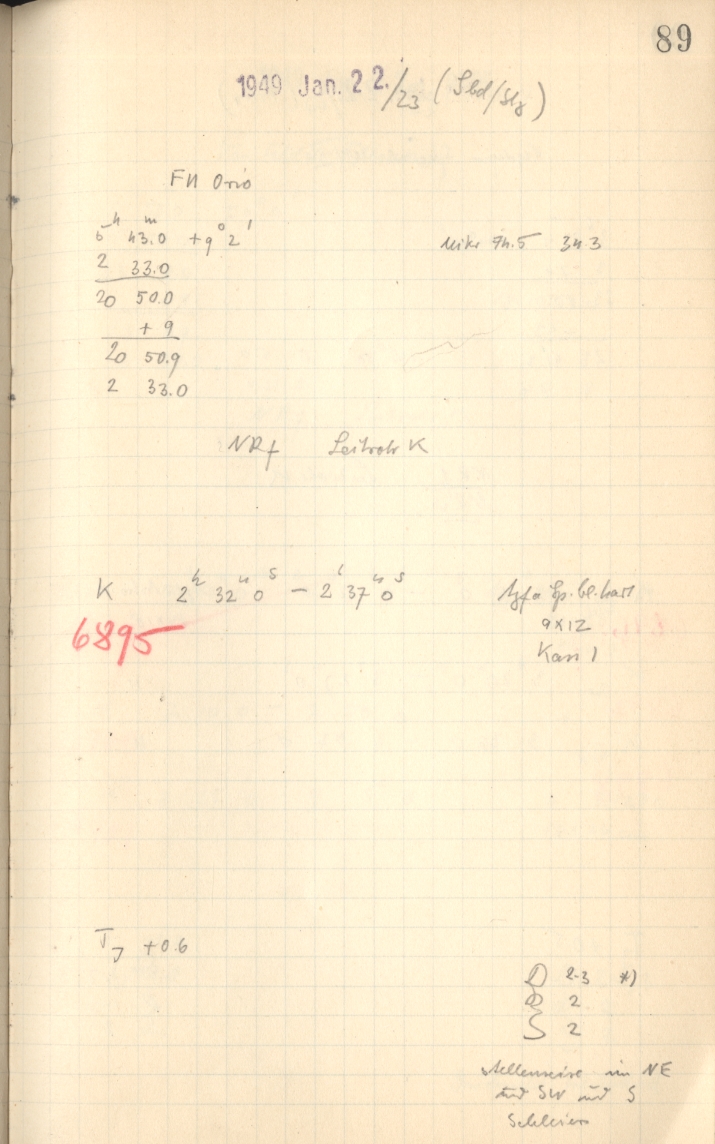 89
1949 Jan. 22./23 (Sbd/Slz)
FU Orio
5ʰ 43.0ᵐ +9° 2'
2 33.0
20 50.0
+ 9
20 50.9
2 33.0
Mikr 74.5 34.3
NRf Leitrohr K
K 2ʰ 32ᵐ 0ˢ - 2ʰ 37ᵐ 0ˢ
6895
Agfa Sp. bl. hart
9x12
Kass 1
T_J +0.6
D 2-3 *)
B 2
S 2
stellenweise im NE
und SW und S
Schleier